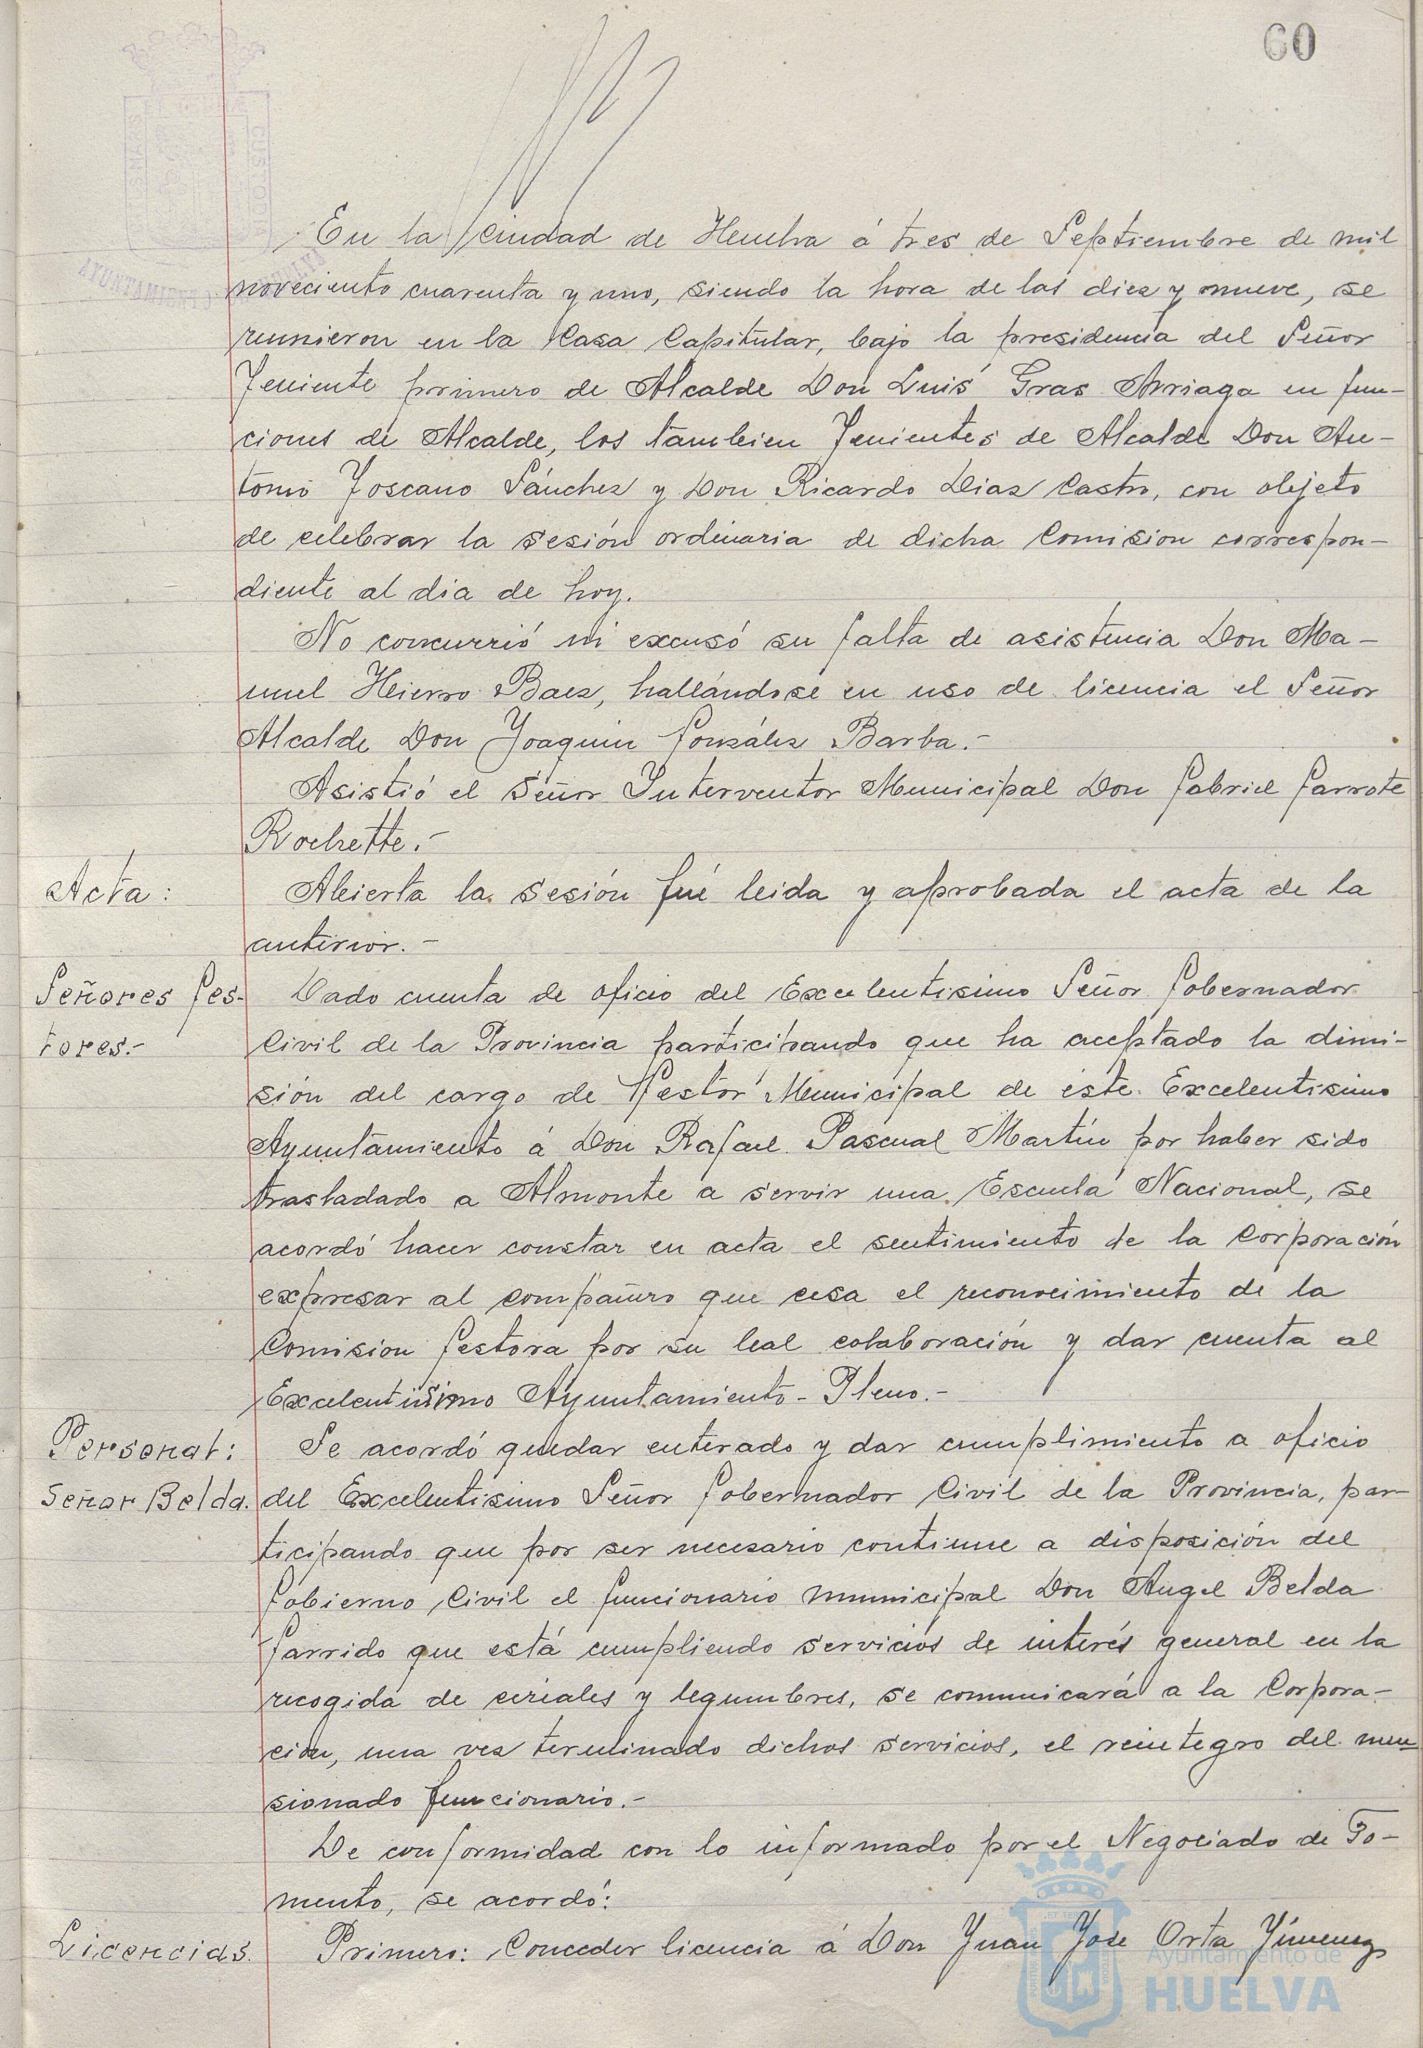 60
En la ciudad de Huelva á tres de Septiembre de mil
noveciento cuarenta y uno, siendo la hora de las diez y nueve, se
reunieron en la Casa Capitular, bajo la presidencia del Señor
Teniente primero de Alcalde Don Luis Gras Arriaga en fun-
ciones de Alcalde, los tambien Tenientes de Alcalde Don An-
tonio Toscano Sánchez y Don Ricardo Diaz Castro, con objeto
de celebrar la sesión ordinaria de dicha Comision correspon-
diente al dia de hoy.
No concurrió ni excusó su falta de asistencia Don Ma-
nuel Hierro Baez, hallándose en uso de licencia el Señor
Alcalde Don Joaquin González Barba.-
Asistió el Señor Interventor Municipal Don Gabriel Garrote
Rochette.-
Acta:
Abierta la sesión fué leida y aprobada el acta de la
anterior.-
Señores Ges-
tores.-
Dado cuenta de oficio del Excelentisimo Señor Gobernador
Civil de la Provincia participando que ha aceptado la dimi-
sión del cargo de Gestor Municipal de éste Excelentisimo
Ayuntamiento á Don Rafael Pascual Martín por haber sido
trasladado a Almonte a servir una Escuela Nacional, se
acordó hacer constar en acta el sentimiento de la Corporación
expresar al compañero que cesa el reconocimiento de la
Comision Gestora por su leal colaboración y dar cuenta al
Excelentisimo Ayuntamiento-Pleno.-
Personal:
Señor Belda.
Se acordó quedar enterado y dar cumplimiento a oficio
del Excelentisimo Señor Gobernador Civil de la Provincia, par-
ticipando que por ser necesario continue a disposición del
Gobierno Civil el funcionario municipal Don Angel Belda
Garrido que está cumpliendo servicios de interés general en la
recogida de cereales y legumbres, se comunicará a la Corpora-
cion, una vez terminado dichos servicios, el reintegro del men
sionado funcionario.-
De conformidad con lo informado por el Negociado de Fo-
mento, se acordó:
Licencias.
Primero: Conceder licencia á Don Juan Jose Orta Jimenez
Ayuntamiento de
HUELVA